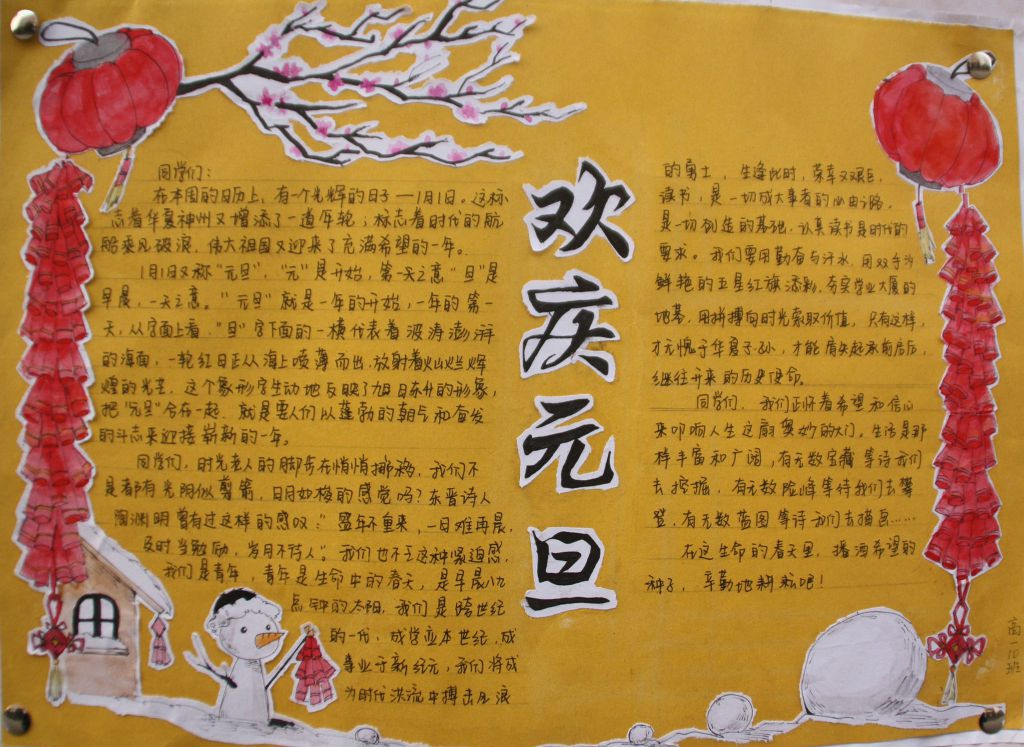 欢庆元旦
同学们：
在本周的日历上，有一个光辉的日子——1月1日。这标
志着华夏神州又增添了一道年轮；标志着时代的航
船乘风破浪，伟大祖国又迎来了充满希望的一年。
1月1日又称“元旦”，“元”是开始，第一天之意“旦”是
早晨，一天之意。“元旦”就是一年的开始，一年的第一
天，从字面上看，“旦”字下面的一横代表着波涛澎湃
的海面，一轮红日正从海上喷薄而出，放射着灿烂辉
煌的光芒，这个象形字生动地反映了旭日东升的形象，
把“元旦”合在一起，就是要人们以蓬勃的朝气和奋发
的斗志来迎接崭新的一年。
同学们，时光老人的脚步在悄悄挪移，我们不
是都有光阴似剪箭，日月如梭的感觉吗？东晋诗人
陶渊明曾有过这样的感叹：“盛年不重来，一日难再晨，
及时当勉励，岁月不待人”。我们也不乏这种紧迫感，
我们是青年，青年是生命中的春天，是早晨八九
点钟的太阳，我们是跨世纪
的一代，成学业本世纪，成
事业于新纪元，我们将成
为时代洪流中搏击风浪
的勇士，生逢此时，荣幸又艰巨，
读书，是一切成大事者的必由之路，
是一切创造的基础，认真读书是时代的
要求。我们要用勤奋与汗水，用双手为
鲜艳的五星红旗添彩，夯实学业大厦的
地基，用拼搏向时光索取价值，只有这样，
才无愧于华夏子孙，才能肩负起承前启后，
继往开来的历史使命。
同学们，我们正怀着希望和信心
来叩响人生这扇奥妙的大门。生活是那
样丰富和广阔，有无数宝藏等待我们
去挖掘，有无数险峰等待我们去攀
登，有无数蓝图等待我们去描画……
在这生命的春天里，播洒希望的
种子，辛勤地耕耘吧！
高一10班